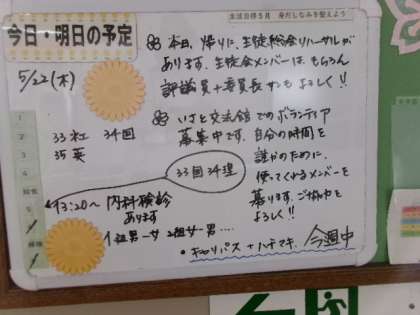 生活目標5月 身だしなみを整えよう
今日・明日の予定
5/22(木)
本日、帰りに、生徒総会リハーサルが
あります。生徒会メンバーは もちろん
評議員+委員長サンも よろしく!!
いさと交流館での ボランティア
募集中です。自分の時間を
誰かのために、
使ってくれるメンバーを
募ります。ご協力を
よろしく!!
1
2 33社 34国
3 35英
4
33国 34理
給食
5 13:20〜 内科検診
あります
1組男→女 2組女→男…
・キャリパス + ハチマキ 今週中